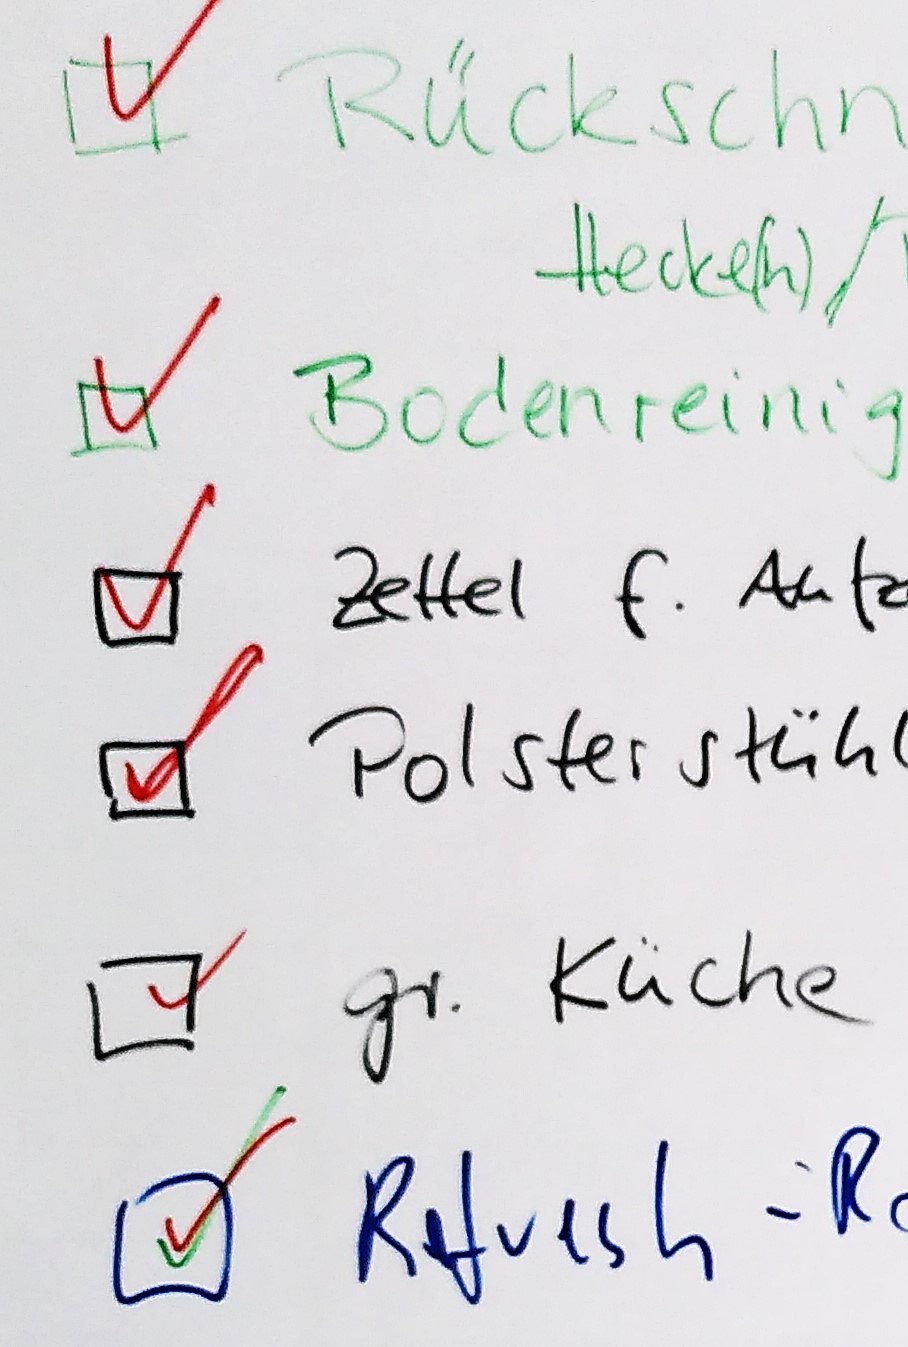 Rückschn
Hecke(n)/
Bodenreinig
Zettel f. Au
Polsterstühl
gr. Küche
Refresh-R